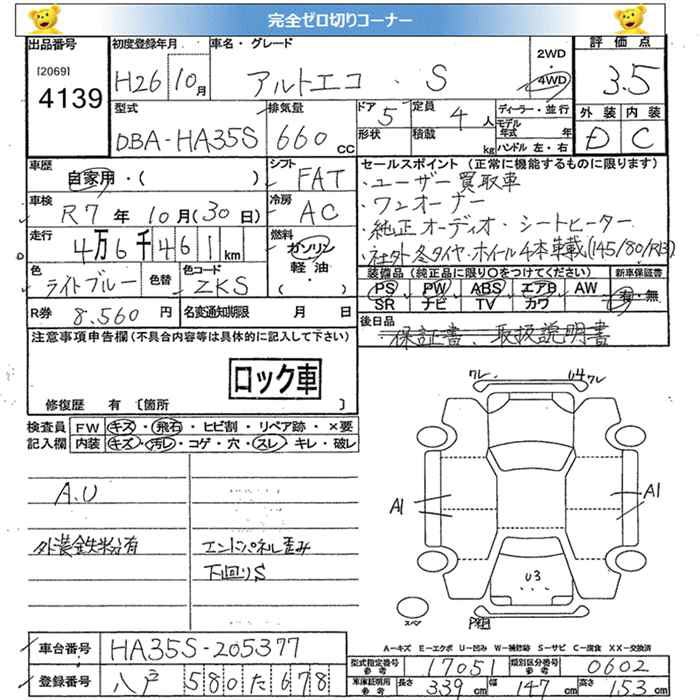 完全ゼロ切りコーナー
出品番号
[2069]
4139
初度登録年月
H26 10月
車名・グレード
アルトエコ . S
2WD
・
4WD
評価点
3.5
外装 内装
D C
型式
DBA-HA35S
排気量
660 CC
ドア
5
定員
4人
形状
積載
kg
ディーラー・並行
モデル年式 年
ハンドル 左・右
車歴
自家用・( )
シフト
FAT
車検
R7年10月(30日)
冷房
AC
走行
4万6千461km
燃料
ガソリン
軽油
・( )
色
ライトブルー
色替
色コード
ZKS
R券
8.560円
名変通知期限 月 日
セールスポイント(正常に機能するものに限ります)
・ユーザー買取車
・ワンオーナー
・純正オーディオ・シートヒーター
・社外冬タイヤ・ホイール4本車載(145/80/R13)
装備品(純正品に限り○をつけてください)
新車保証書
PS PW ABS エアB AW
SR ナビ TV カワ
有・無
後日品
保証書、取扱説明書
注意事項申告欄(不具合内容等は具体的に記入して下さい)
ロック車
修復歴 有〔箇所 〕
検査員記入欄
FW キズ・飛石・ヒビ割・リペア跡・×要
内装 キズ・汚レ・コゲ・穴・スレ・キレ・破レ
A.U
外装鉄粉有
エンドパネル歪み
下回りS
ワレ U4ワレ
A1 A1
U3
スペア
A-キズ E-エクボ U-凹み W-補修跡 S-サビ C-腐食 XX-交換済
車台番号
HA35S-205377
登録番号
八戸 580 た 678
型式指定番号 参考
17051
類別区分番号 参考
0602
車庫証明用 参考
長さ 339cm 幅 147cm 高さ 153cm